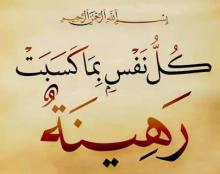 بسم الله الرحمن الرحيم
كُلُّ نَفْسٍ بِمَا كَسَبَتْ
رَهِينَةٌ